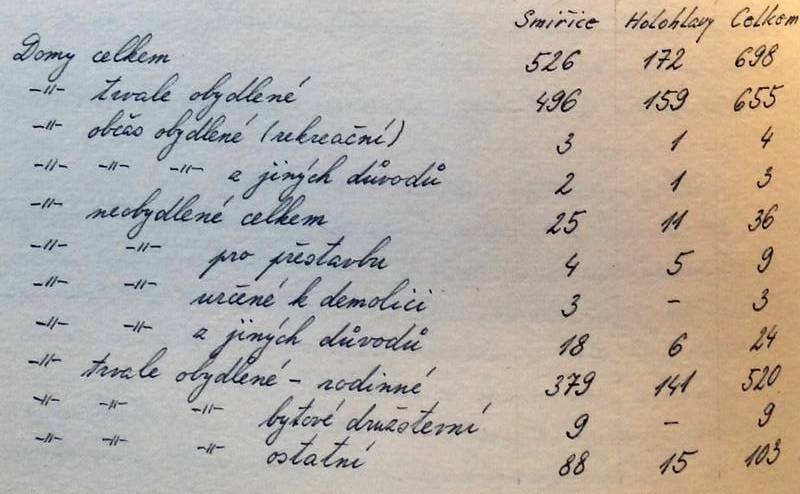 Smiřice Holohlavy Celkem
Domy celkem 526 172 698
-"- trvale obydlené 496 159 655
-"- občas obydlené (rekreační) 3 1 4
-"- -"- -"- z jiných důvodů 2 1 3
-"- neobydlené celkem 25 11 36
-"- -"- pro přestavbu 4 5 9
-"- -"- určené k demolici 3 - 3
-"- -"- z jiných důvodů 18 6 24
-"- trvale obydlené - rodinné 379 141 520
-"- -"- -"- bytové družstevní 9 - 9
-"- -"- -"- ostatní 88 15 103